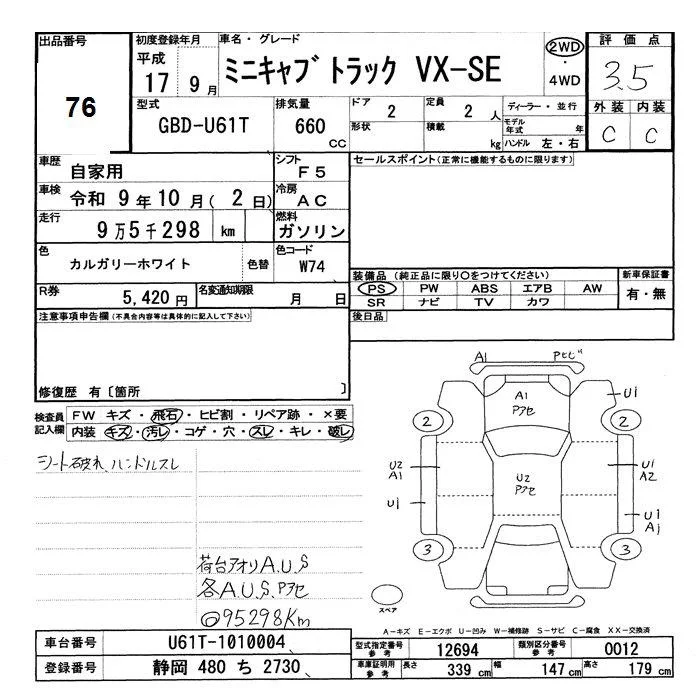 出品番号 初度登録年月 車名・グレード 評価点
76
平成 17 9月
ミニキャブ トラック VX-SE
2WD・4WD
3.5
型式 GBD-U61T
排気量 660 CC
ドア 2
定員 2 人
ディーラー・並行
外装 内装
C C
形状
積載 kg
モデル年式 年
ハンドル 左・右
車歴 自家用
シフト F5
セールスポイント(正常に機能するものに限ります)
車検 令和 9年10月( 2日)
冷房 AC
走行 9万5千298 km
燃料 ガソリン
色 カルガリーホワイト 色替
色コード W74
装備品 (純正品に限り○をつけてください) 新車保証書
PS PW ABS エアB AW 有・無
SR ナビ TV カワ
R券 5,420円
名変通知期限 月 日
後日品
注意事項申告欄(不具合内容等は具体的に記入して下さい)
修復歴 有〔箇所 〕
検査員記入欄
FW キズ・飛石・ヒビ割・リペア跡・×要
内装 キズ・汚レ・コゲ・穴・スレ・キレ・破レ
シート破れ、ハンドルスレ
荷台アオリA.U.S
各A.U.S.Pアセ
@95298Km
A1 Pセビ
A1
Pアセ
U1
2 2
U2
A1
U2
Pアセ
U1
A2
U1
U1
A1
3 3
スペア
A-キズ E-エクボ U-凹み W-補修跡 S-サビ C-腐食 XX-交換済
車台番号 U61T-1010004
型式指定番号 参考 12694
類別区分番号 参考 0012
登録番号 静岡 480 ち 2730
車庫証明用 参考 長さ 339 cm 幅 147 cm 高さ 179 cm